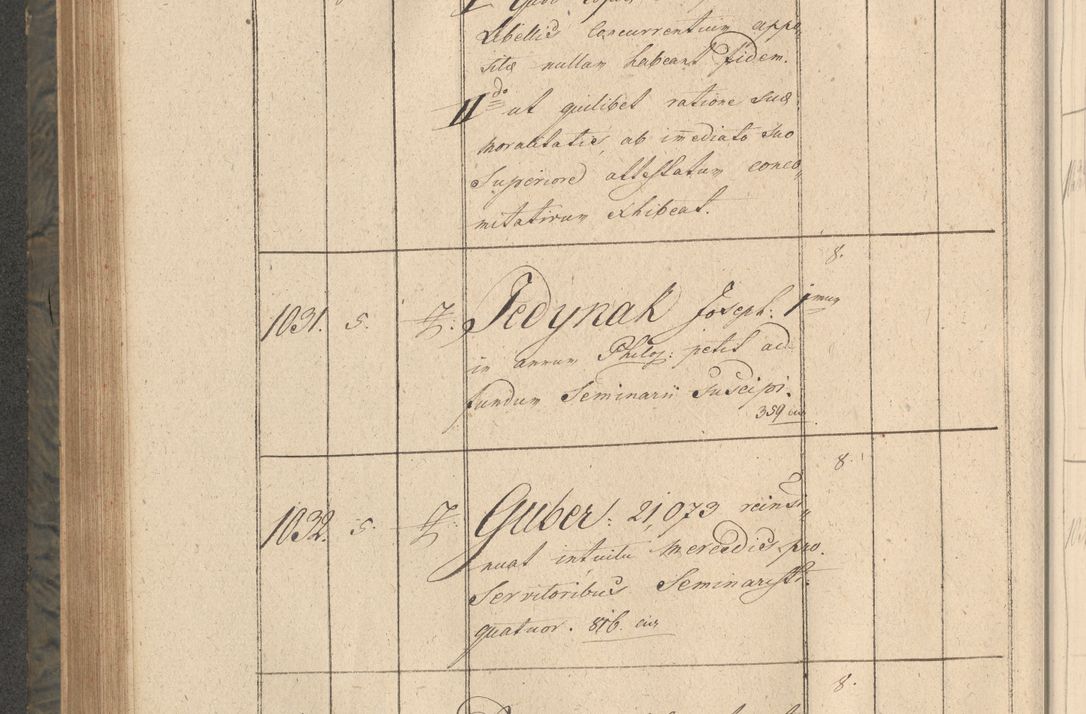 Libellis Concurrentium appo„
sitæ nullam habeant fidem.
II do ut quilibet ratione suæ
moralitatis, ab imediato suo
Superiore attestatum conco„
mitativum exhibeat.
8.
1031. 5. 7. Jedynak Joseph: 1mum
in annum Philoz: petit ad
fundum Seminarii suscipi.
359 cur
8.
1032. 5. 7. Guber: 21,073 reinsi„
nuat intuitu mercedis pro
Servitoribus Seminarist:
quatuor. 876. cur
8.